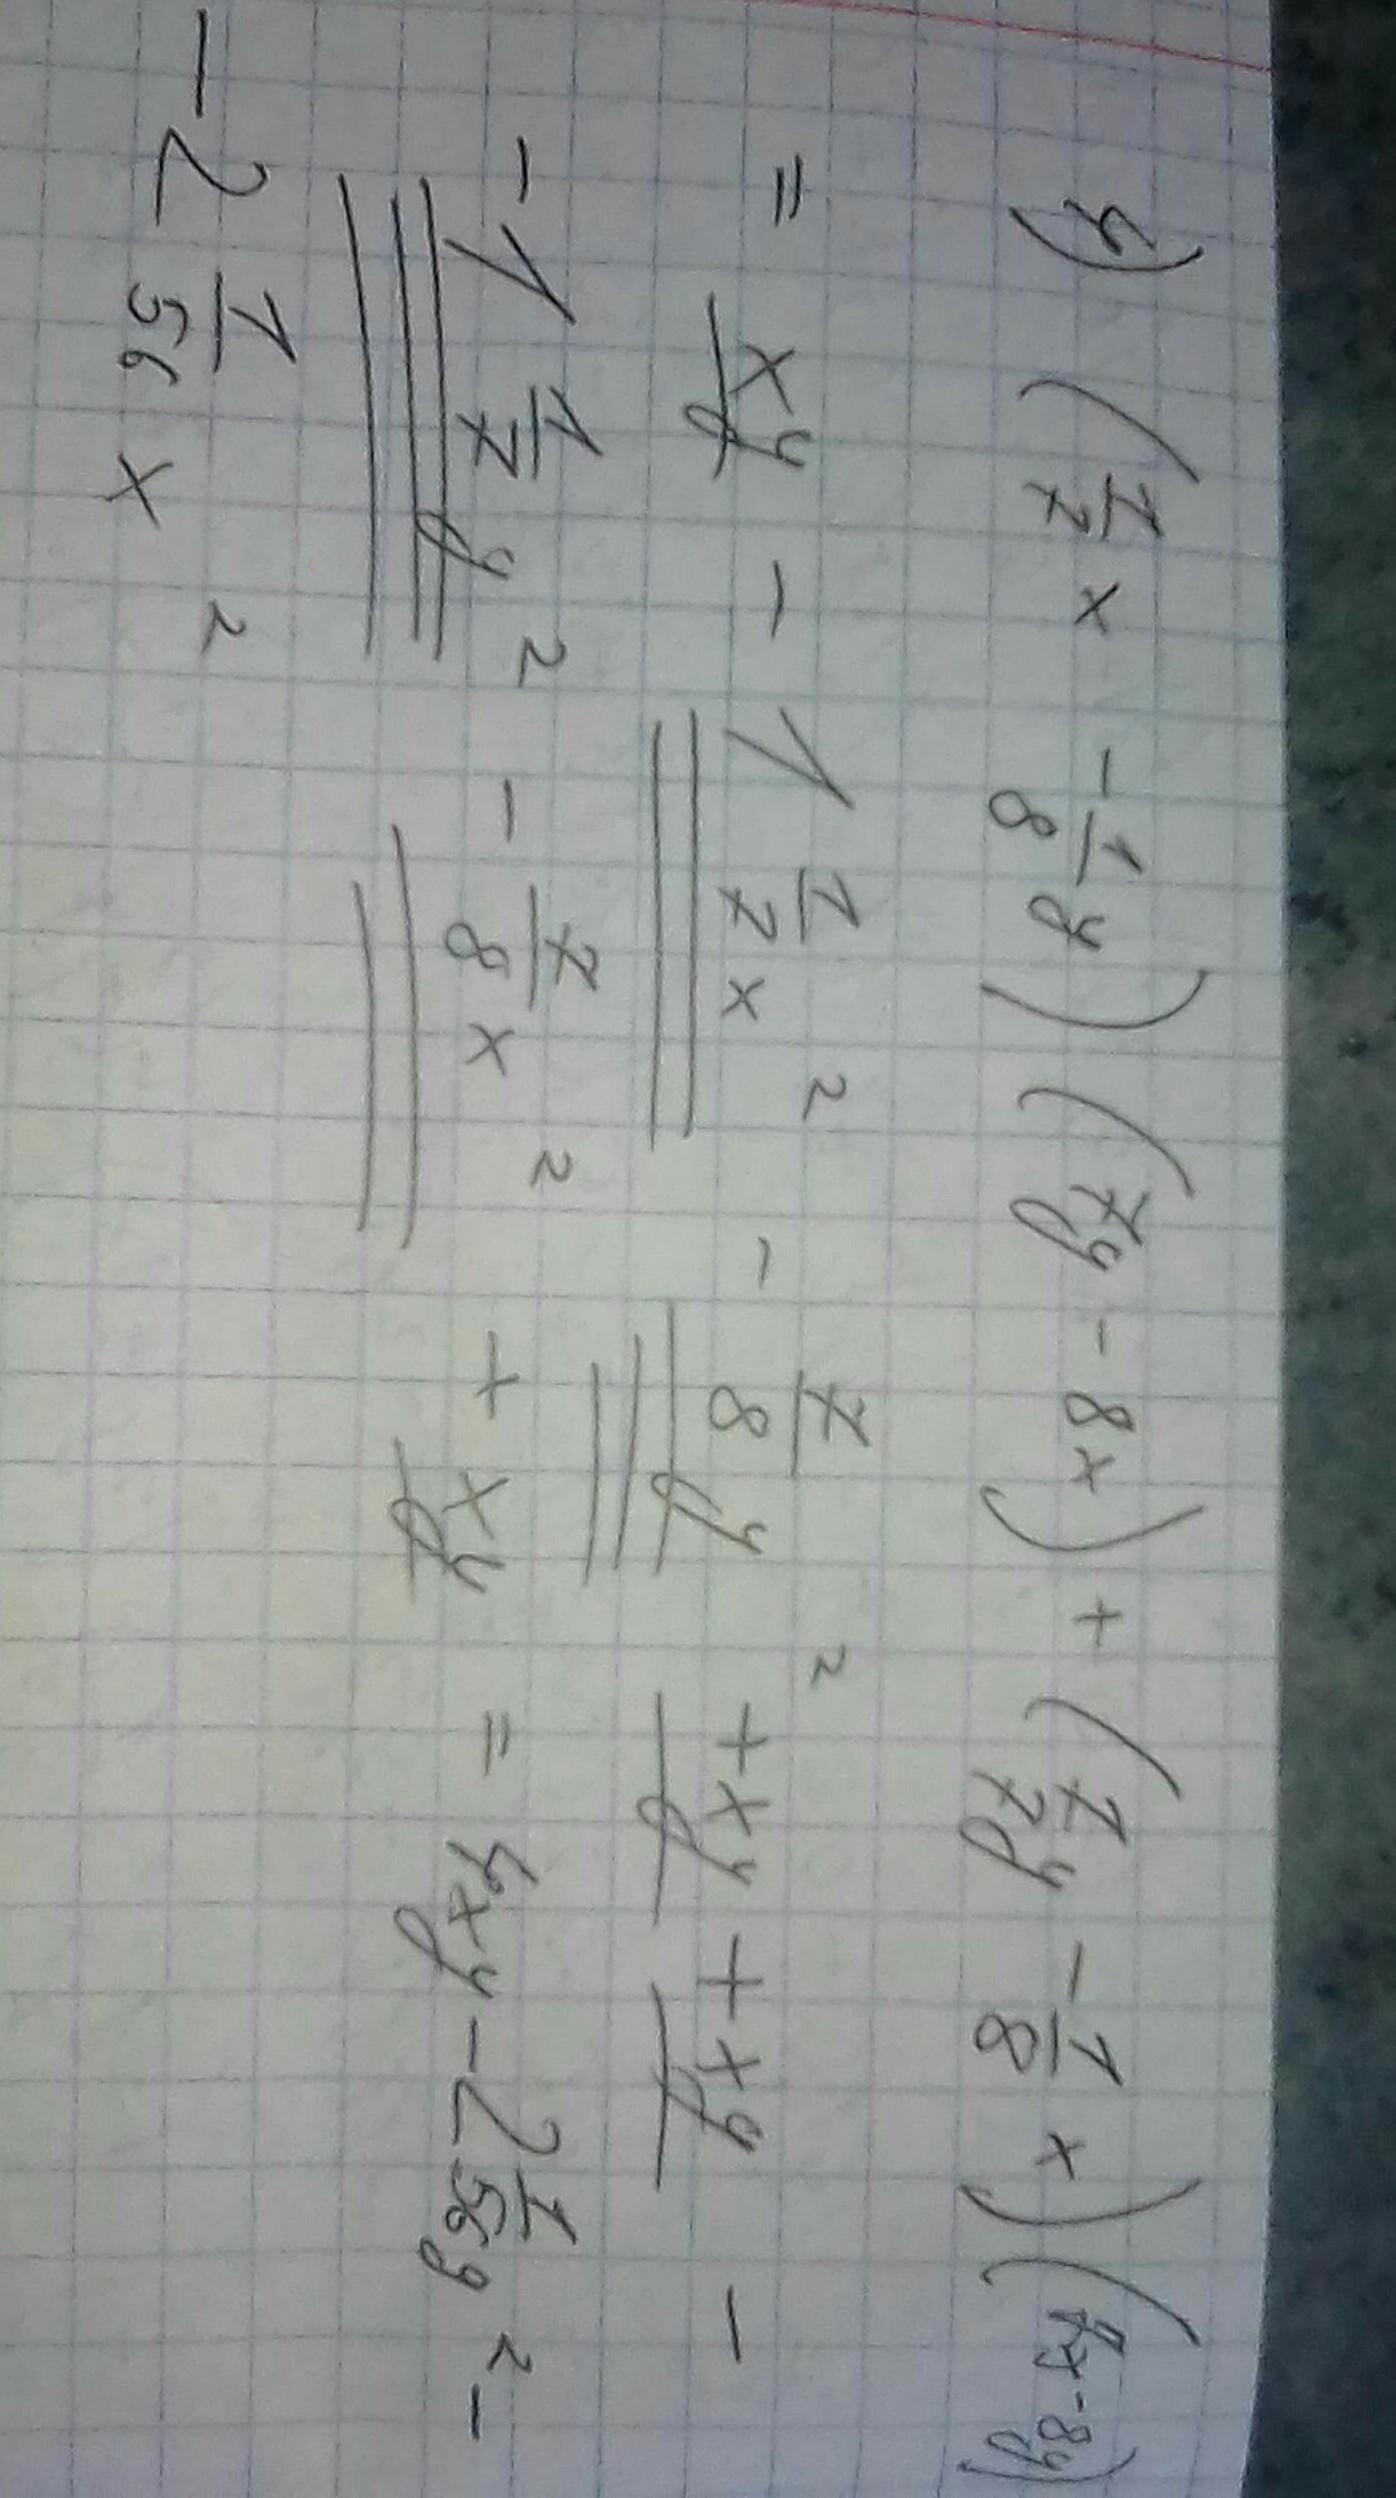 4) (1/7 x - 1/8 y) (7y - 8x) + (1/7 y - 1/8 x) (7x - 8y)
= xy - 1 1/7 x² - 7/8 y² + xy + xy -
- 1 1/7 y² - 7/8 x² + xy = 4xy - 2 1/56 y² -
- 2 1/56 x²